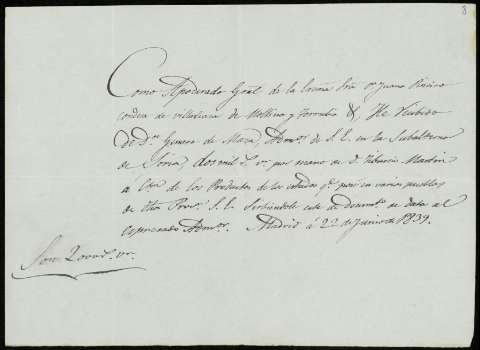 8
Como Apoderado Gral de la Exma Sra Da Juana
Condesa de Villariezo de y &. He recibido
de Dn. Genaro de Admor. de S. E. en la Subalterna
de Soria, dos mil rs. vn por mano de D. Tiburcio Martin
a de los Productos de los estados qe. posee en varios pueblos
de Prova. S. E. sirviendole este de documto. de data al
espresado Admor. Madrid á 22 de Junio de 1839.
Son 2000 rs. vn.